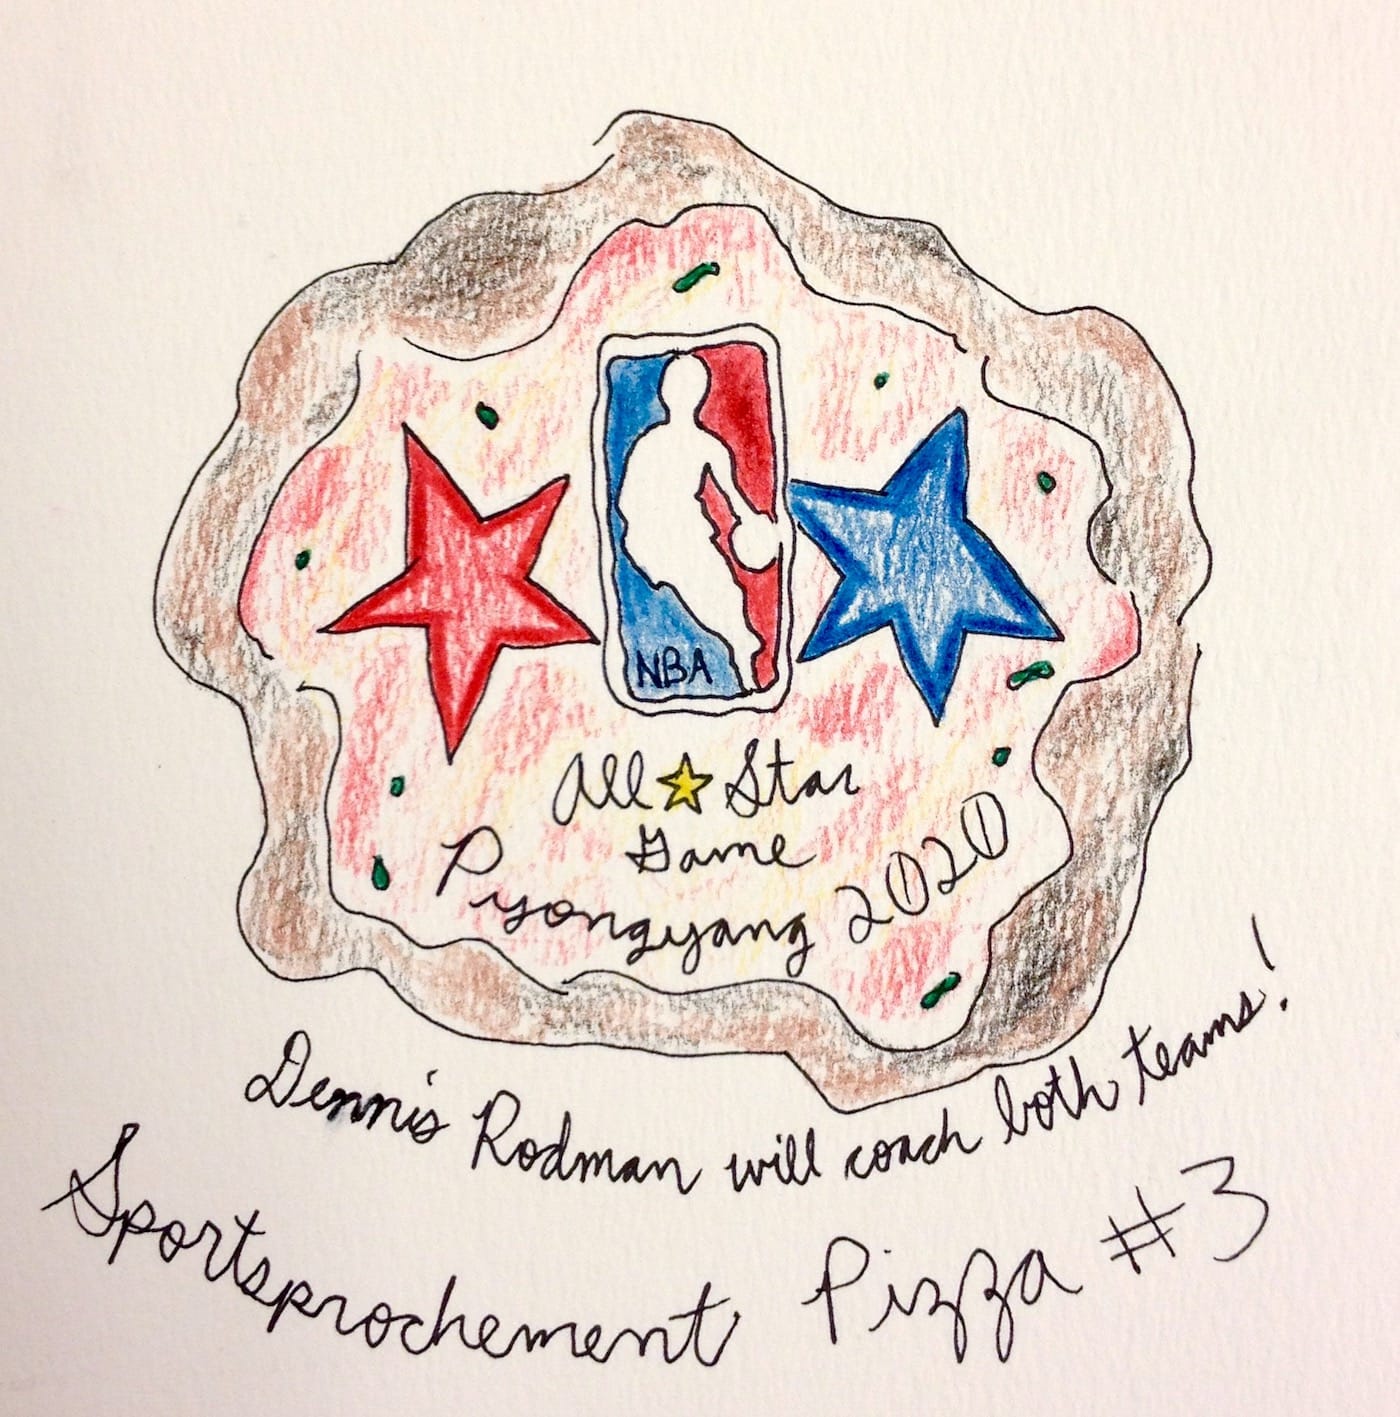 NBA
All Star
Game
Pyongyang 2020
Dennis Rodman will coach both teams!
Sportsprochement Pizza #3